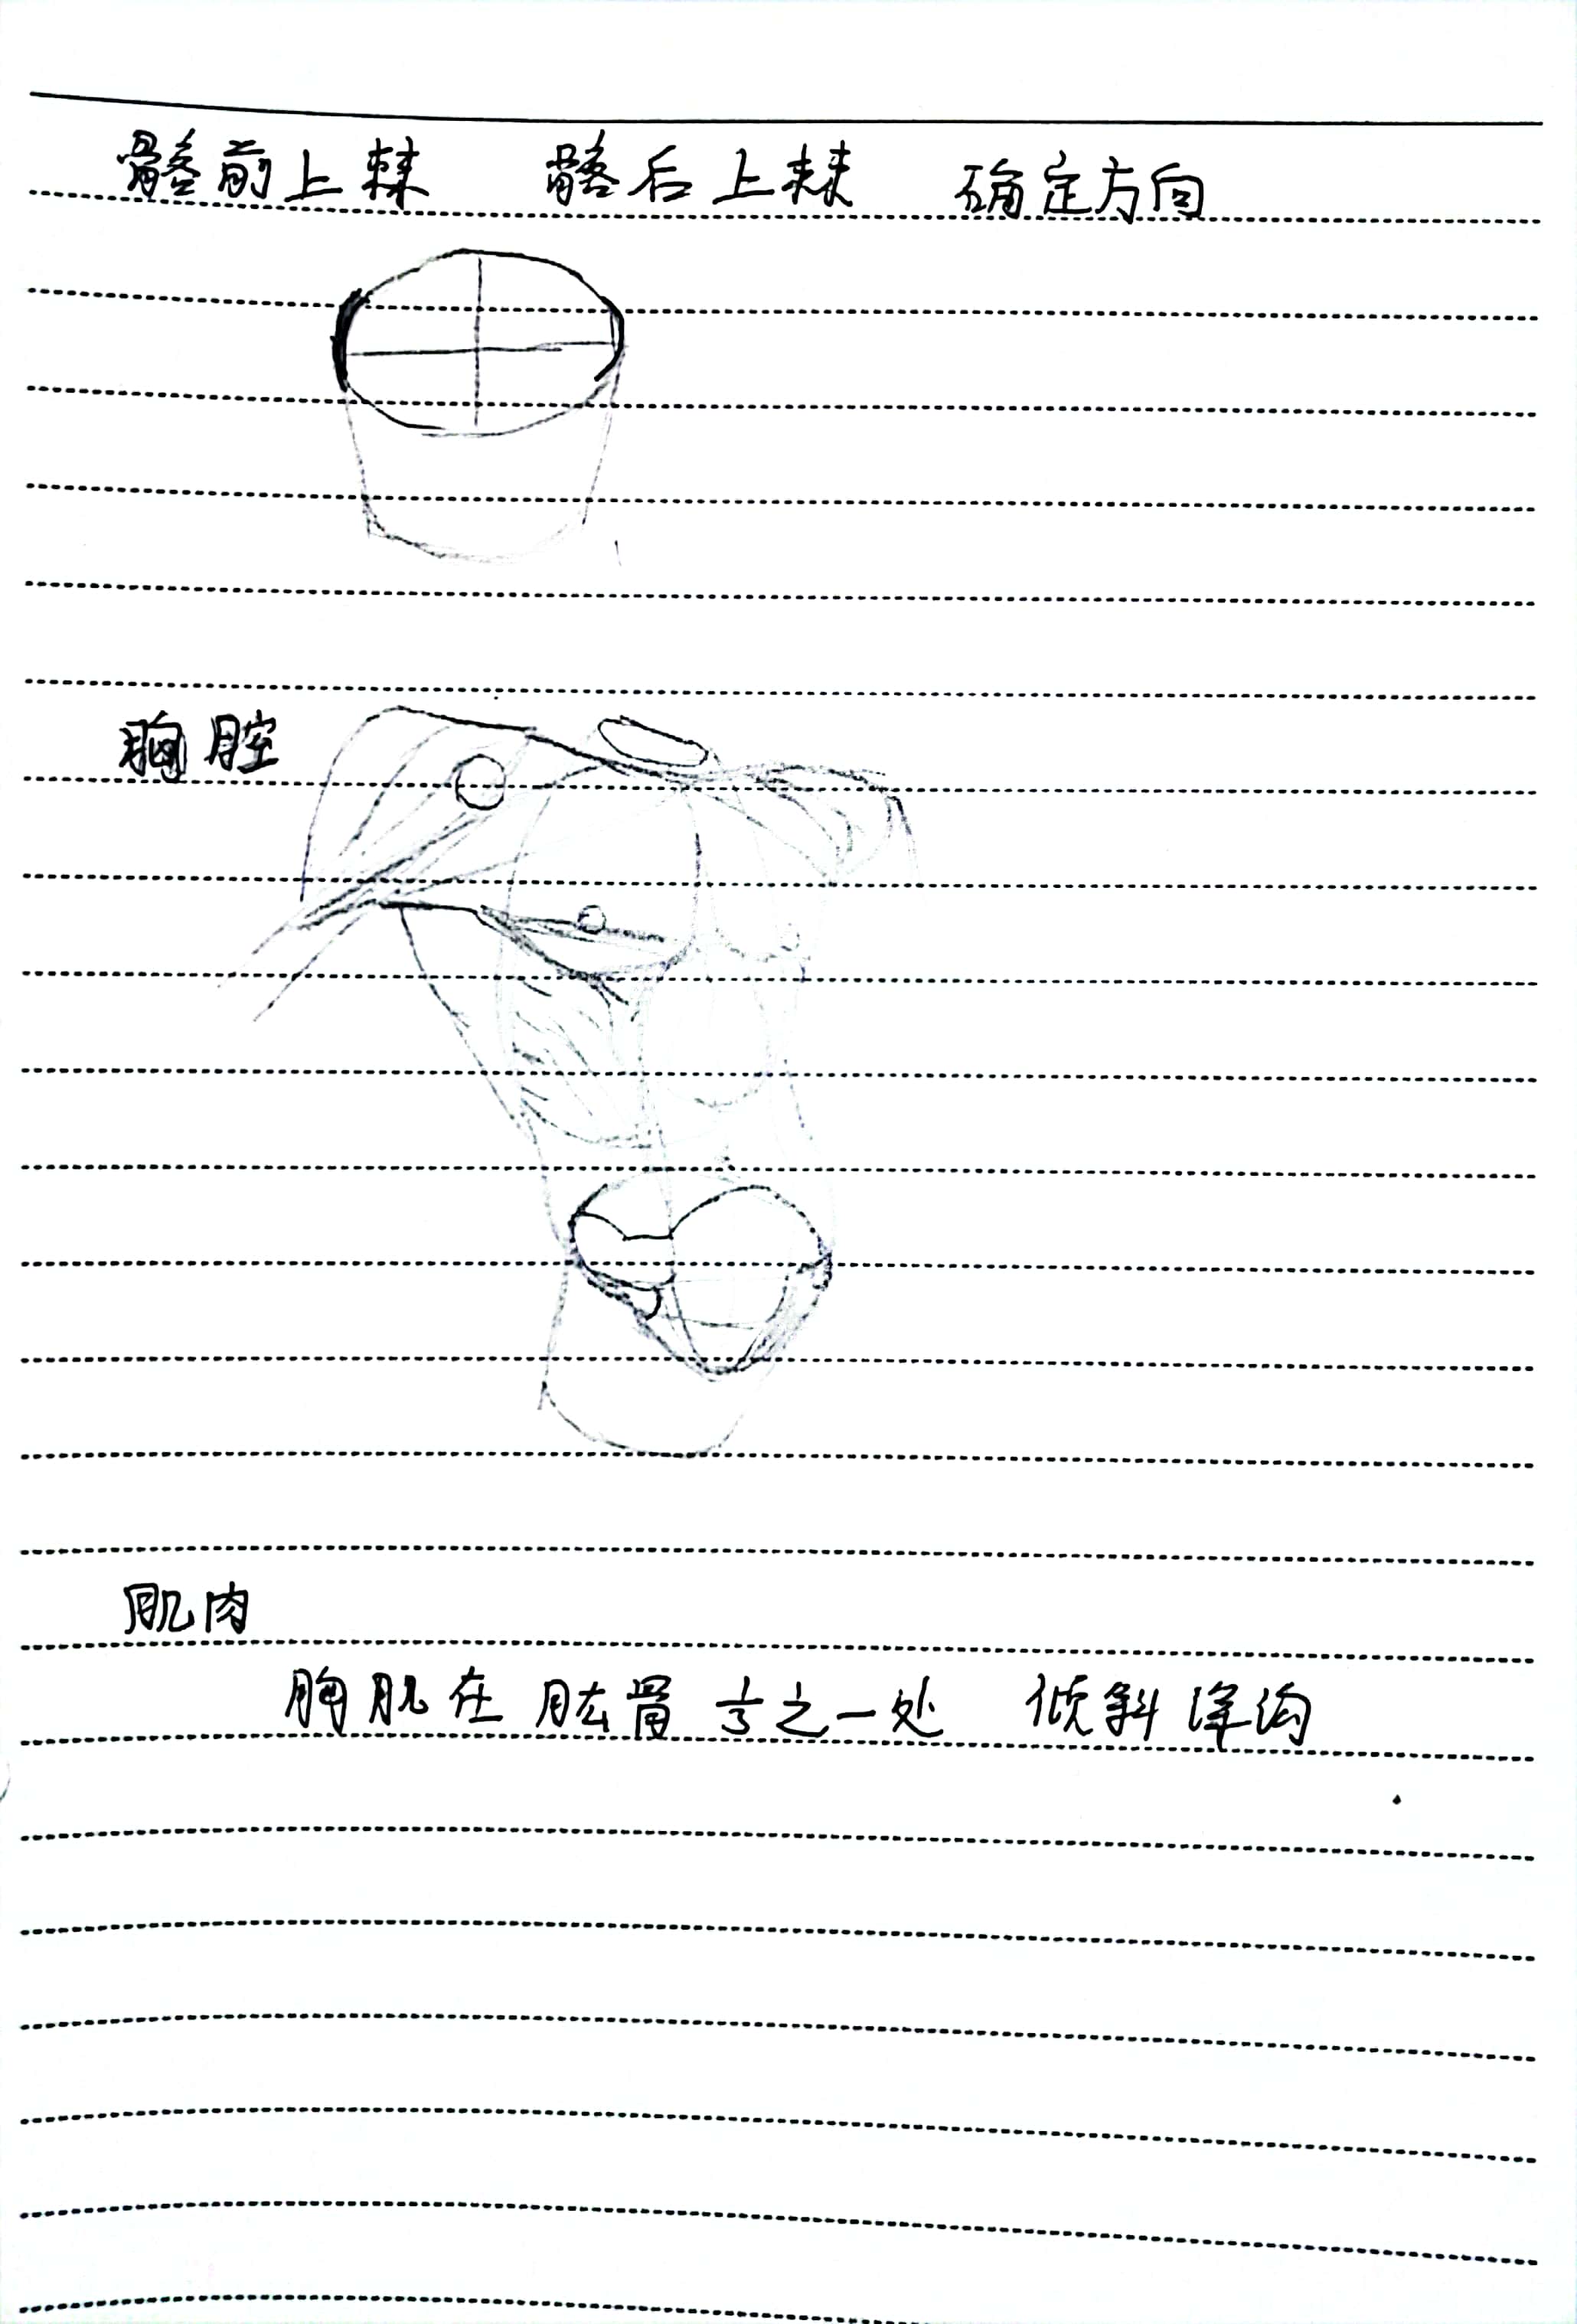 髂前上棘 髂后上棘 确定方向
胸腔
肌肉
胸肌在肱骨 之一处 倾斜